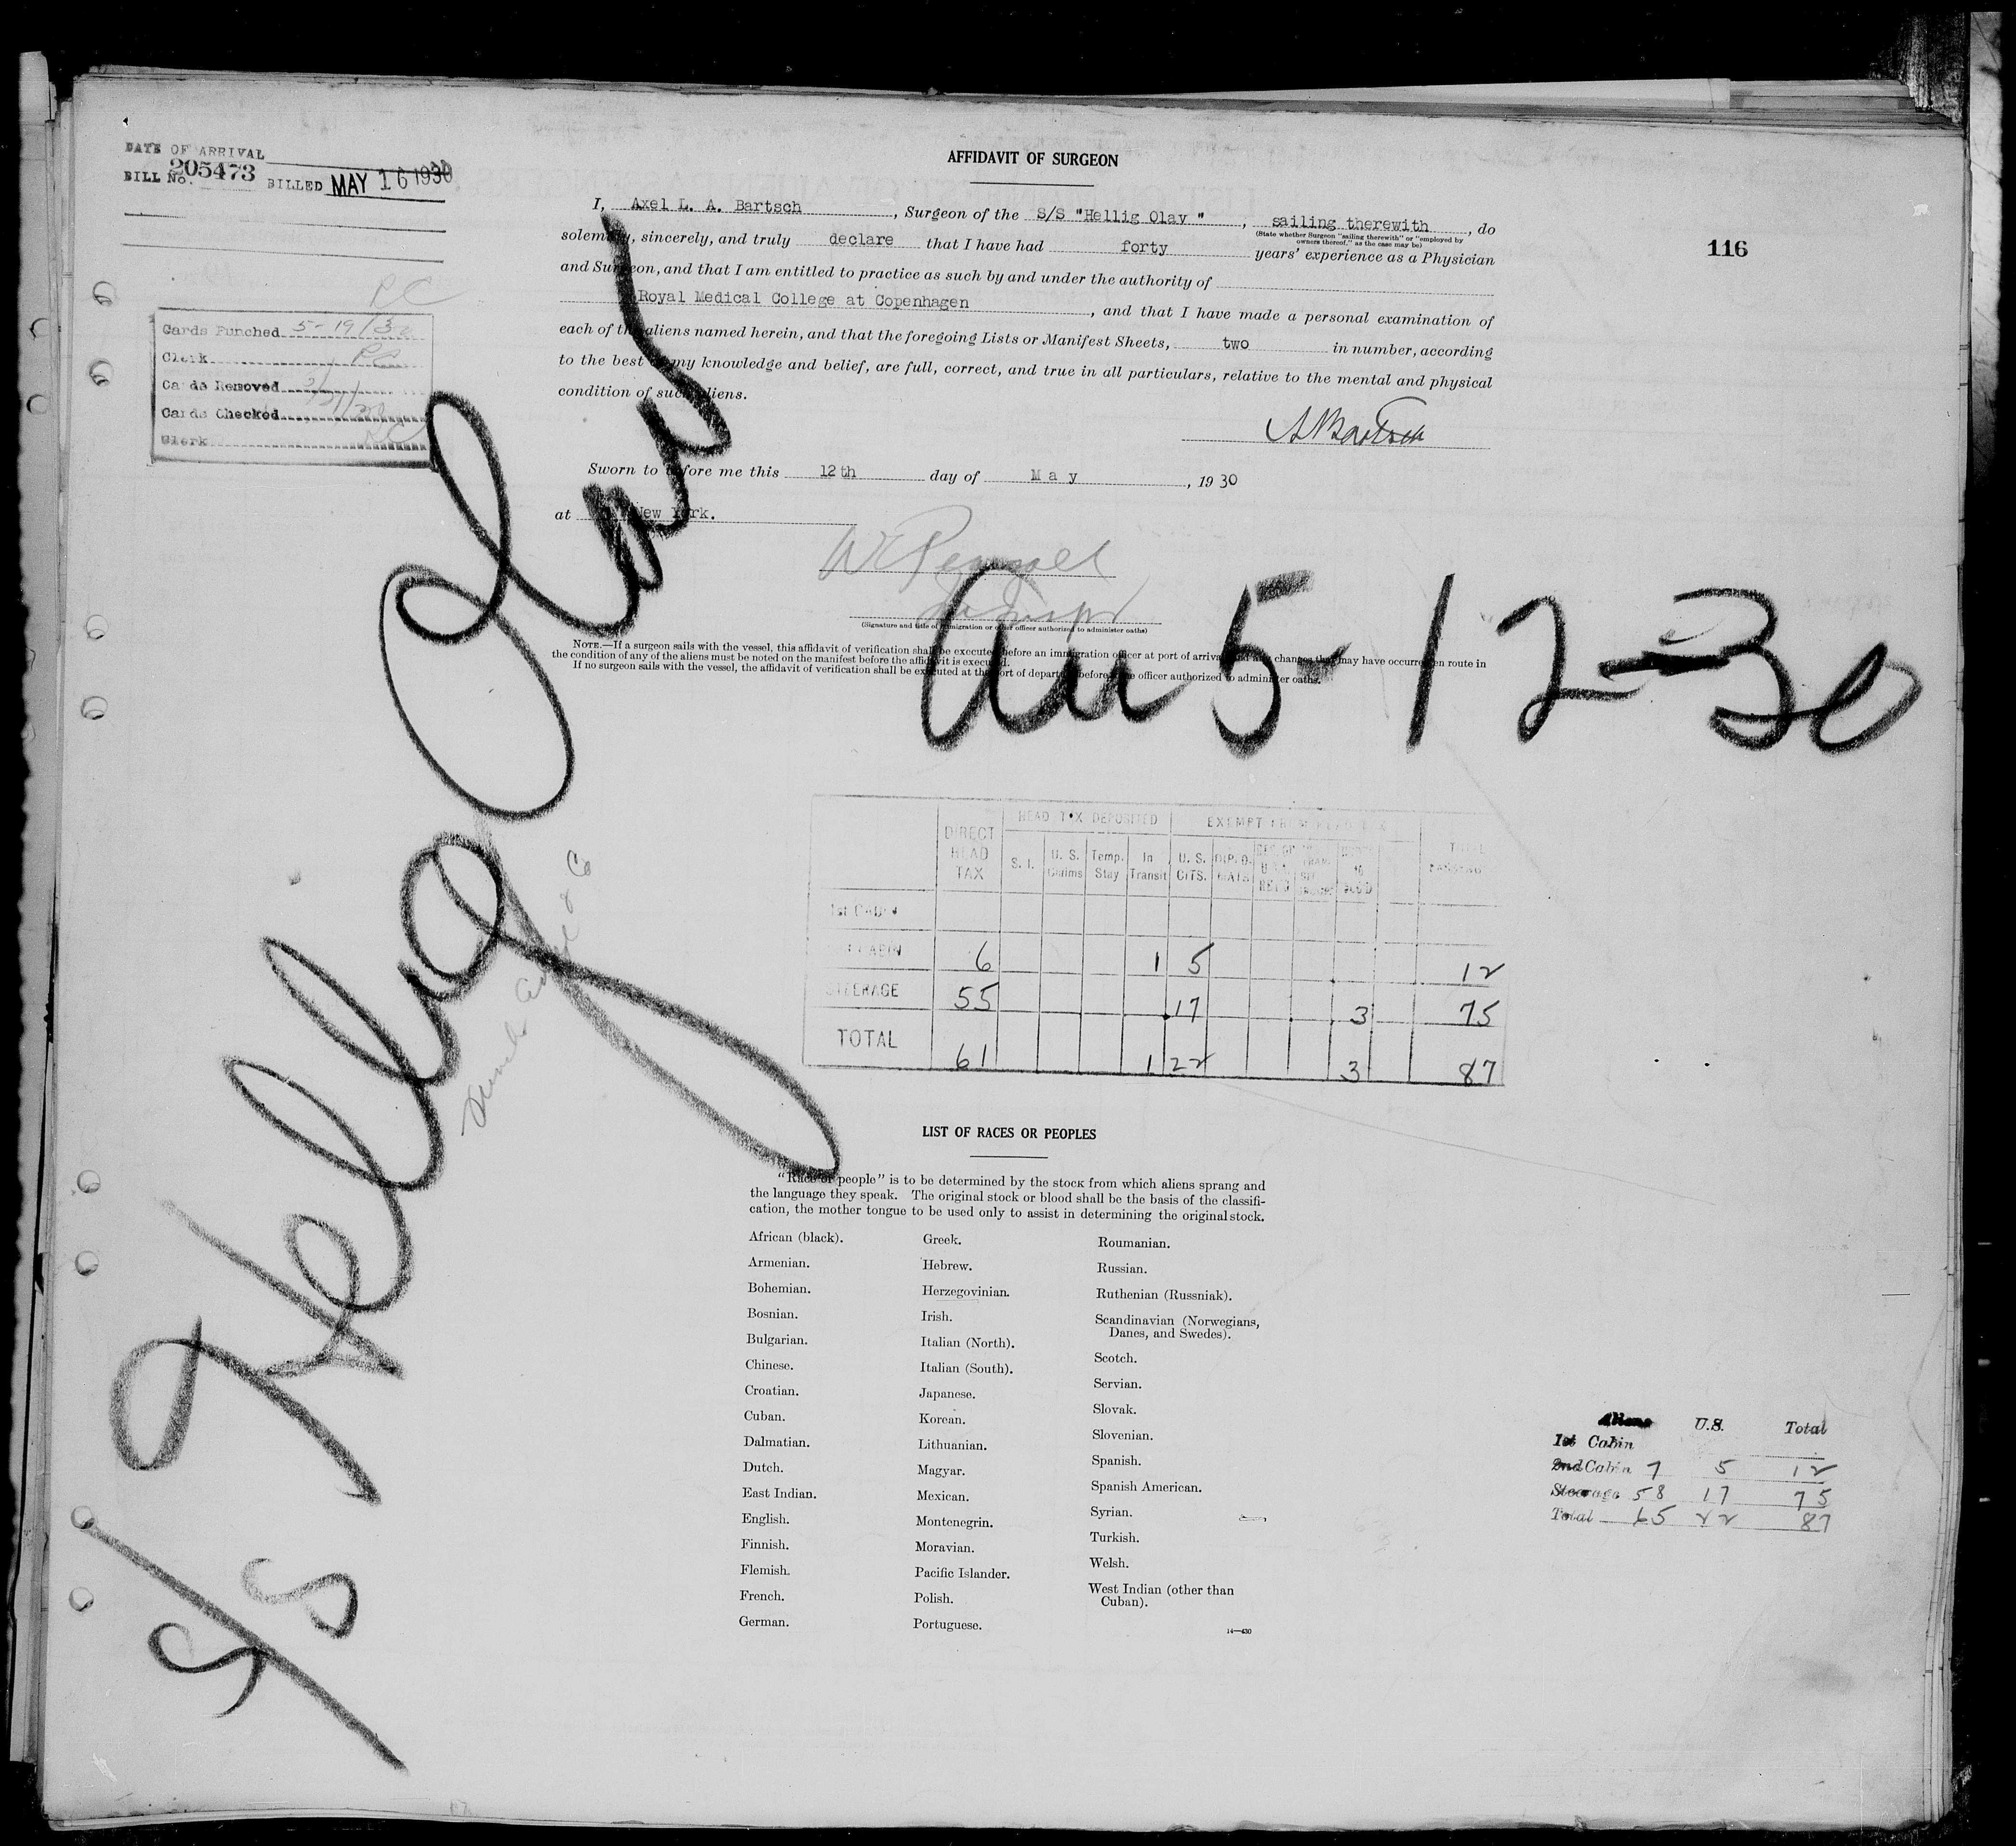 DATE OF ARRIVAL
BILL No. 205473 BILLED MAY 16 1930
AFFIDAVIT OF SURGEON
I, Axel L. A. Bartsch, Surgeon of the S/S "Hellig Olav", sailing therewith, do
(State whether Surgeon "sailing therewith" or "employed by
owners thereof," as the case may be)
solemnly, sincerely, and truly declare that I have had forty years' experience as a Physician
and Surgeon, and that I am entitled to practice as such by and under the authority of
Royal Medical College at Copenhagen, and that I have made a personal examination of
each of the aliens named herein, and that the foregoing Lists or Manifest Sheets, two in number, according
to the best of my knowledge and belief, are full, correct, and true in all particulars, relative to the mental and physical
condition of such aliens.
116
PC
Cards Punched 5-19/30
Clerk PC
Cards Removed
Cards Checked
Clerk
A Bartsch
Sworn to before me this 12th day of May, 1930
at New York.
(Signature and title of immigration or other officer authorized to administer oaths)
NOTE.—If a surgeon sails with the vessel, this affidavit of verification shall be executed before an immigration officer at port of arrival and any changes that may have occurred en route in
the condition of any of the aliens must be noted on the manifest before the affidavit is executed.
If no surgeon sails with the vessel, the affidavit of verification shall be executed at the port of departure before some officer authorized to administer oaths.
S/S Hellig Olav
Arr 5-12-30
HEAD TAX DEPOSITED EXEMPT FROM HEAD TAX
DIRECT HEAD TAX S. I. U. S. Claims Temp. Stay In Transit U. S. CITS. TOTAL
1st CABIN
CABIN 6 1 5 12
STEERAGE 55 17 3 75
TOTAL 61 1 22 3 87
LIST OF RACES OR PEOPLES
"Race or people" is to be determined by the stock from which aliens sprang and
the language they speak. The original stock or blood shall be the basis of the classifi-
cation, the mother tongue to be used only to assist in determining the original stock.
African (black).
Armenian.
Bohemian.
Bosnian.
Bulgarian.
Chinese.
Croatian.
Cuban.
Dalmatian.
Dutch.
East Indian.
English.
Finnish.
Flemish.
French.
German.
Greek.
Hebrew.
Herzegovinian.
Irish.
Italian (North).
Italian (South).
Japanese.
Korean.
Lithuanian.
Magyar.
Mexican.
Montenegrin.
Moravian.
Pacific Islander.
Polish.
Portuguese.
Roumanian.
Russian.
Ruthenian (Russniak).
Scandinavian (Norwegians,
Danes, and Swedes).
Scotch.
Servian.
Slovak.
Slovenian.
Spanish.
Spanish American.
Syrian.
Turkish.
Welsh.
West Indian (other than
Cuban).
14—430
Aliens U.S. Total
1st Cabin
2nd Cabin 7 5 12
Steerage 58 17 75
Total 65 22 87